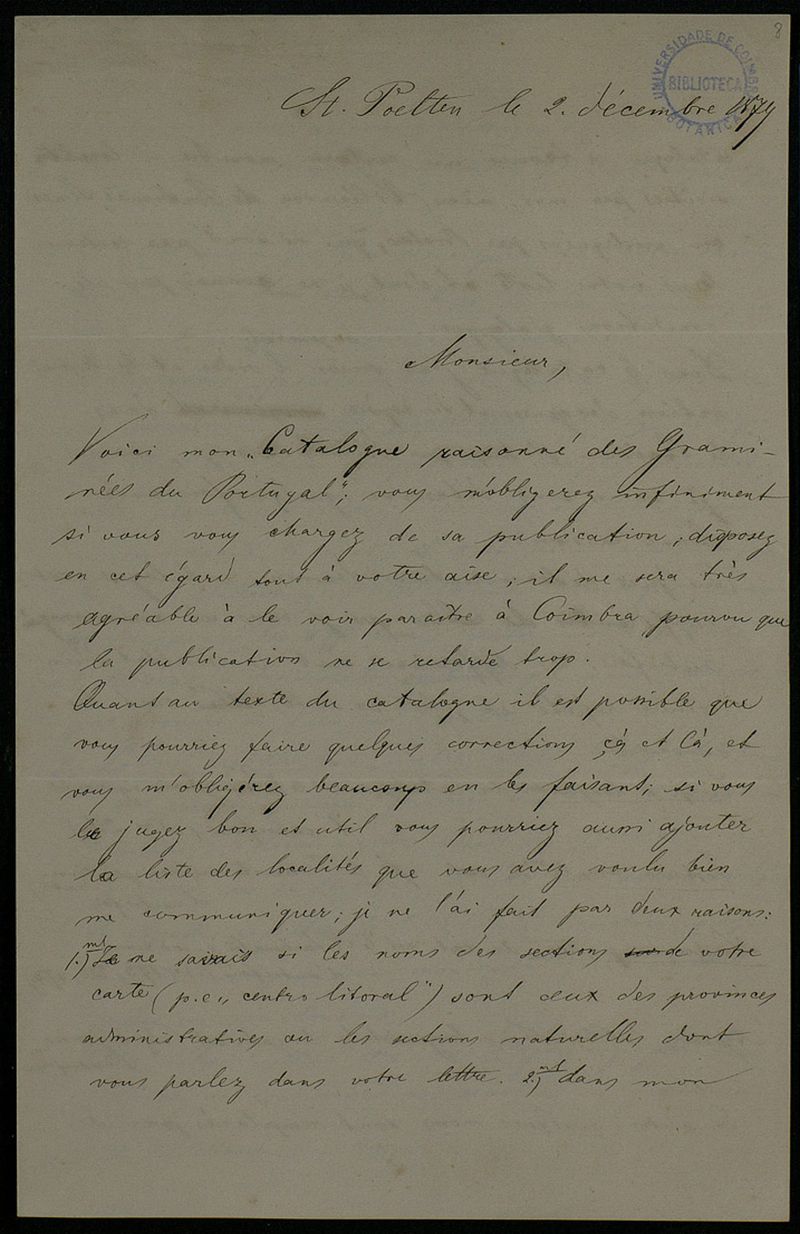 8
UNIVERSIDADE DE COIMBRA
BIBLIOTECA
BOTANICA
St. Poelten le 2. décembre 1879
Monsieur,
Voici mon „Catalogue raisonné des Grami-
nées du Portugal“; vous m'obligerez infiniment
si vous vous chargez de sa publication; disposez
en cet égard tout à votre aise; il me sera très
agréable à le voir paraître à Coimbra pourvu que
la publication ne se retarde trop.
Quant au texte du catalogue il est possible que
vous pourriez faire quelques corrections çà et là, et
vous m'obligérez beaucoup en les faisant; si vous
le jugez bon et util vous pourriez aussi ajouter
la liste des localités que vous avez voulu bien
me communiquer; je ne l'ai fait par deux raisons:
1.) mt Je ne savais si les noms des sections de votre
carte (p.e. „centro litoral“) sont ceux des provinces
administratives ou les sections naturelles dont
vous parlez dans votre lettre. 2.) mt dans mon